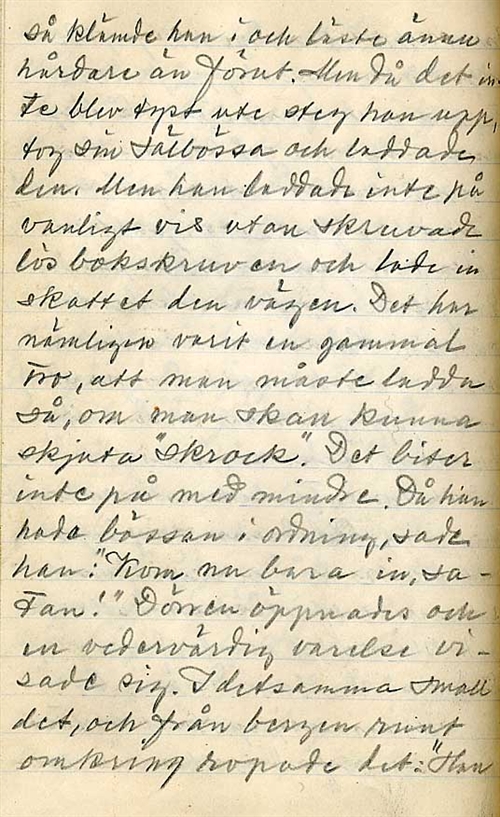 så klämde han i och läste ännu
hårdare än förut. Men då det in-
te blev tyst ute steg han upp,
tog sin sälbössa och laddade
den. Men han laddade inte på
vanligt vis utan skruvade
lös bakskruven och lade in
skottet den vägen. Det har
nämligen varit en gammal
tro, att man måste ladda
så, om man skan kunna
skjuta "skrock". Det biter
inte på med mindre. Då han
hade bössan i ordning, sade
han: "Kom nu bara in, sa-
tan!" Dörren öppnades och
en vedervärdig varelse vi-
sade sig. I detsamma small
det, och från bergen runt
omkring ropade det: "Han